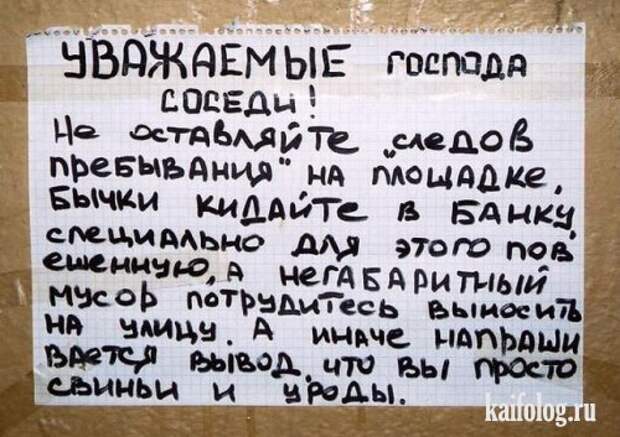 УВАЖАЕМЫЕ ГОСПОДА
СОСЕДИ!
Не оставляйте „следов
пребывания" на площадке,
бычки кидайте в банку,
специально для этого пов
ешенную, а негабаритный
мусор потрудитесь выносить
на улицу. А иначе напраши
вается вывод, что вы просто
свиньи и уроды.
kaifolog.ru